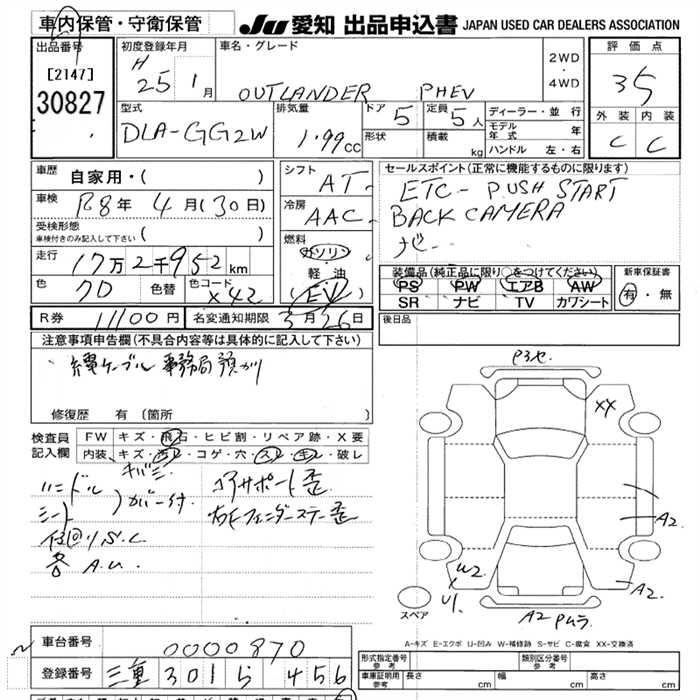 車内保管・守衛保管
JU 愛知 出品申込書 JAPAN USED CAR DEALERS ASSOCIATION
出品番号
[2147]
30827
初度登録年月
H 25 1月
車名・グレード
OUTLANDER PHEV
2WD
・
4WD
評価点
35
外装 内装
C C
型式
DLA-GG2W
排気量
1.99cc
ドア 5
形状
定員 5人
積載 kg
ディーラー・並行
モデル年式 年
ハンドル 左・右
車歴
自家用・( )
車検
R8年 4月(30日)
受検形態
車検付きのみ記入して下さい ( )
走行
17万2千952km
色 クロ 色替 色コード X42
シフト AT
冷房 AAC
燃料
ガソリン
軽油
(EV)
セールスポイント(正常に機能するものに限ります)
ETC PUSH START
BACK CAMERA
ナビ
装備品(純正品に限り○をつけてください)
PS PW エアB AW
SR ナビ TV カワシート
新車保証書
有・無
R券 11100円 名変通知期限 3月26日
注意事項申告欄(不具合内容等は具体的に記入して下さい)
ケーブル 事務局預かり
修復歴 有 [箇所
後日品
検査員
記入欄
FW キズ・飛石・ヒビ割・リペア跡・X要
内装 キズ・汚レ・コゲ・穴・スレ・キレ・破レ
ハンドル
シート
各 A.U.
コアサポート歪
右Fフェンダーステー歪
XX
A2
W2
U1
A2
A2
スペア
A-キズ E-エクボ U-凹み W-補修跡 S-サビ C-腐食 XX-交換済
車台番号 0000870
登録番号 三重 301 ら 456
形式指定番号
参考
類別区分番号
参考
車庫証明用
参考
長さ cm 幅 cm 高さ cm